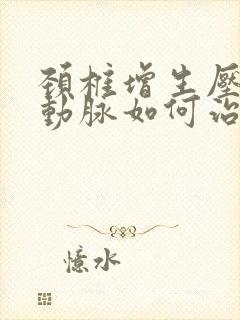 頚柱增生壓
動脉如何治
憶水